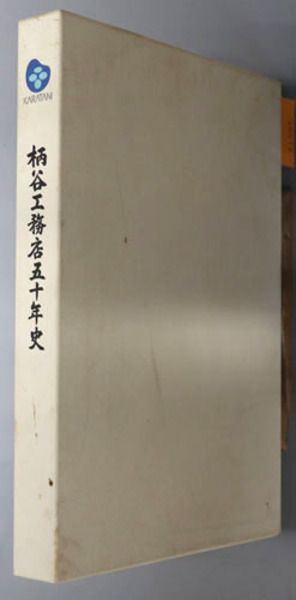 KARATANI
柄谷工務店五十年史